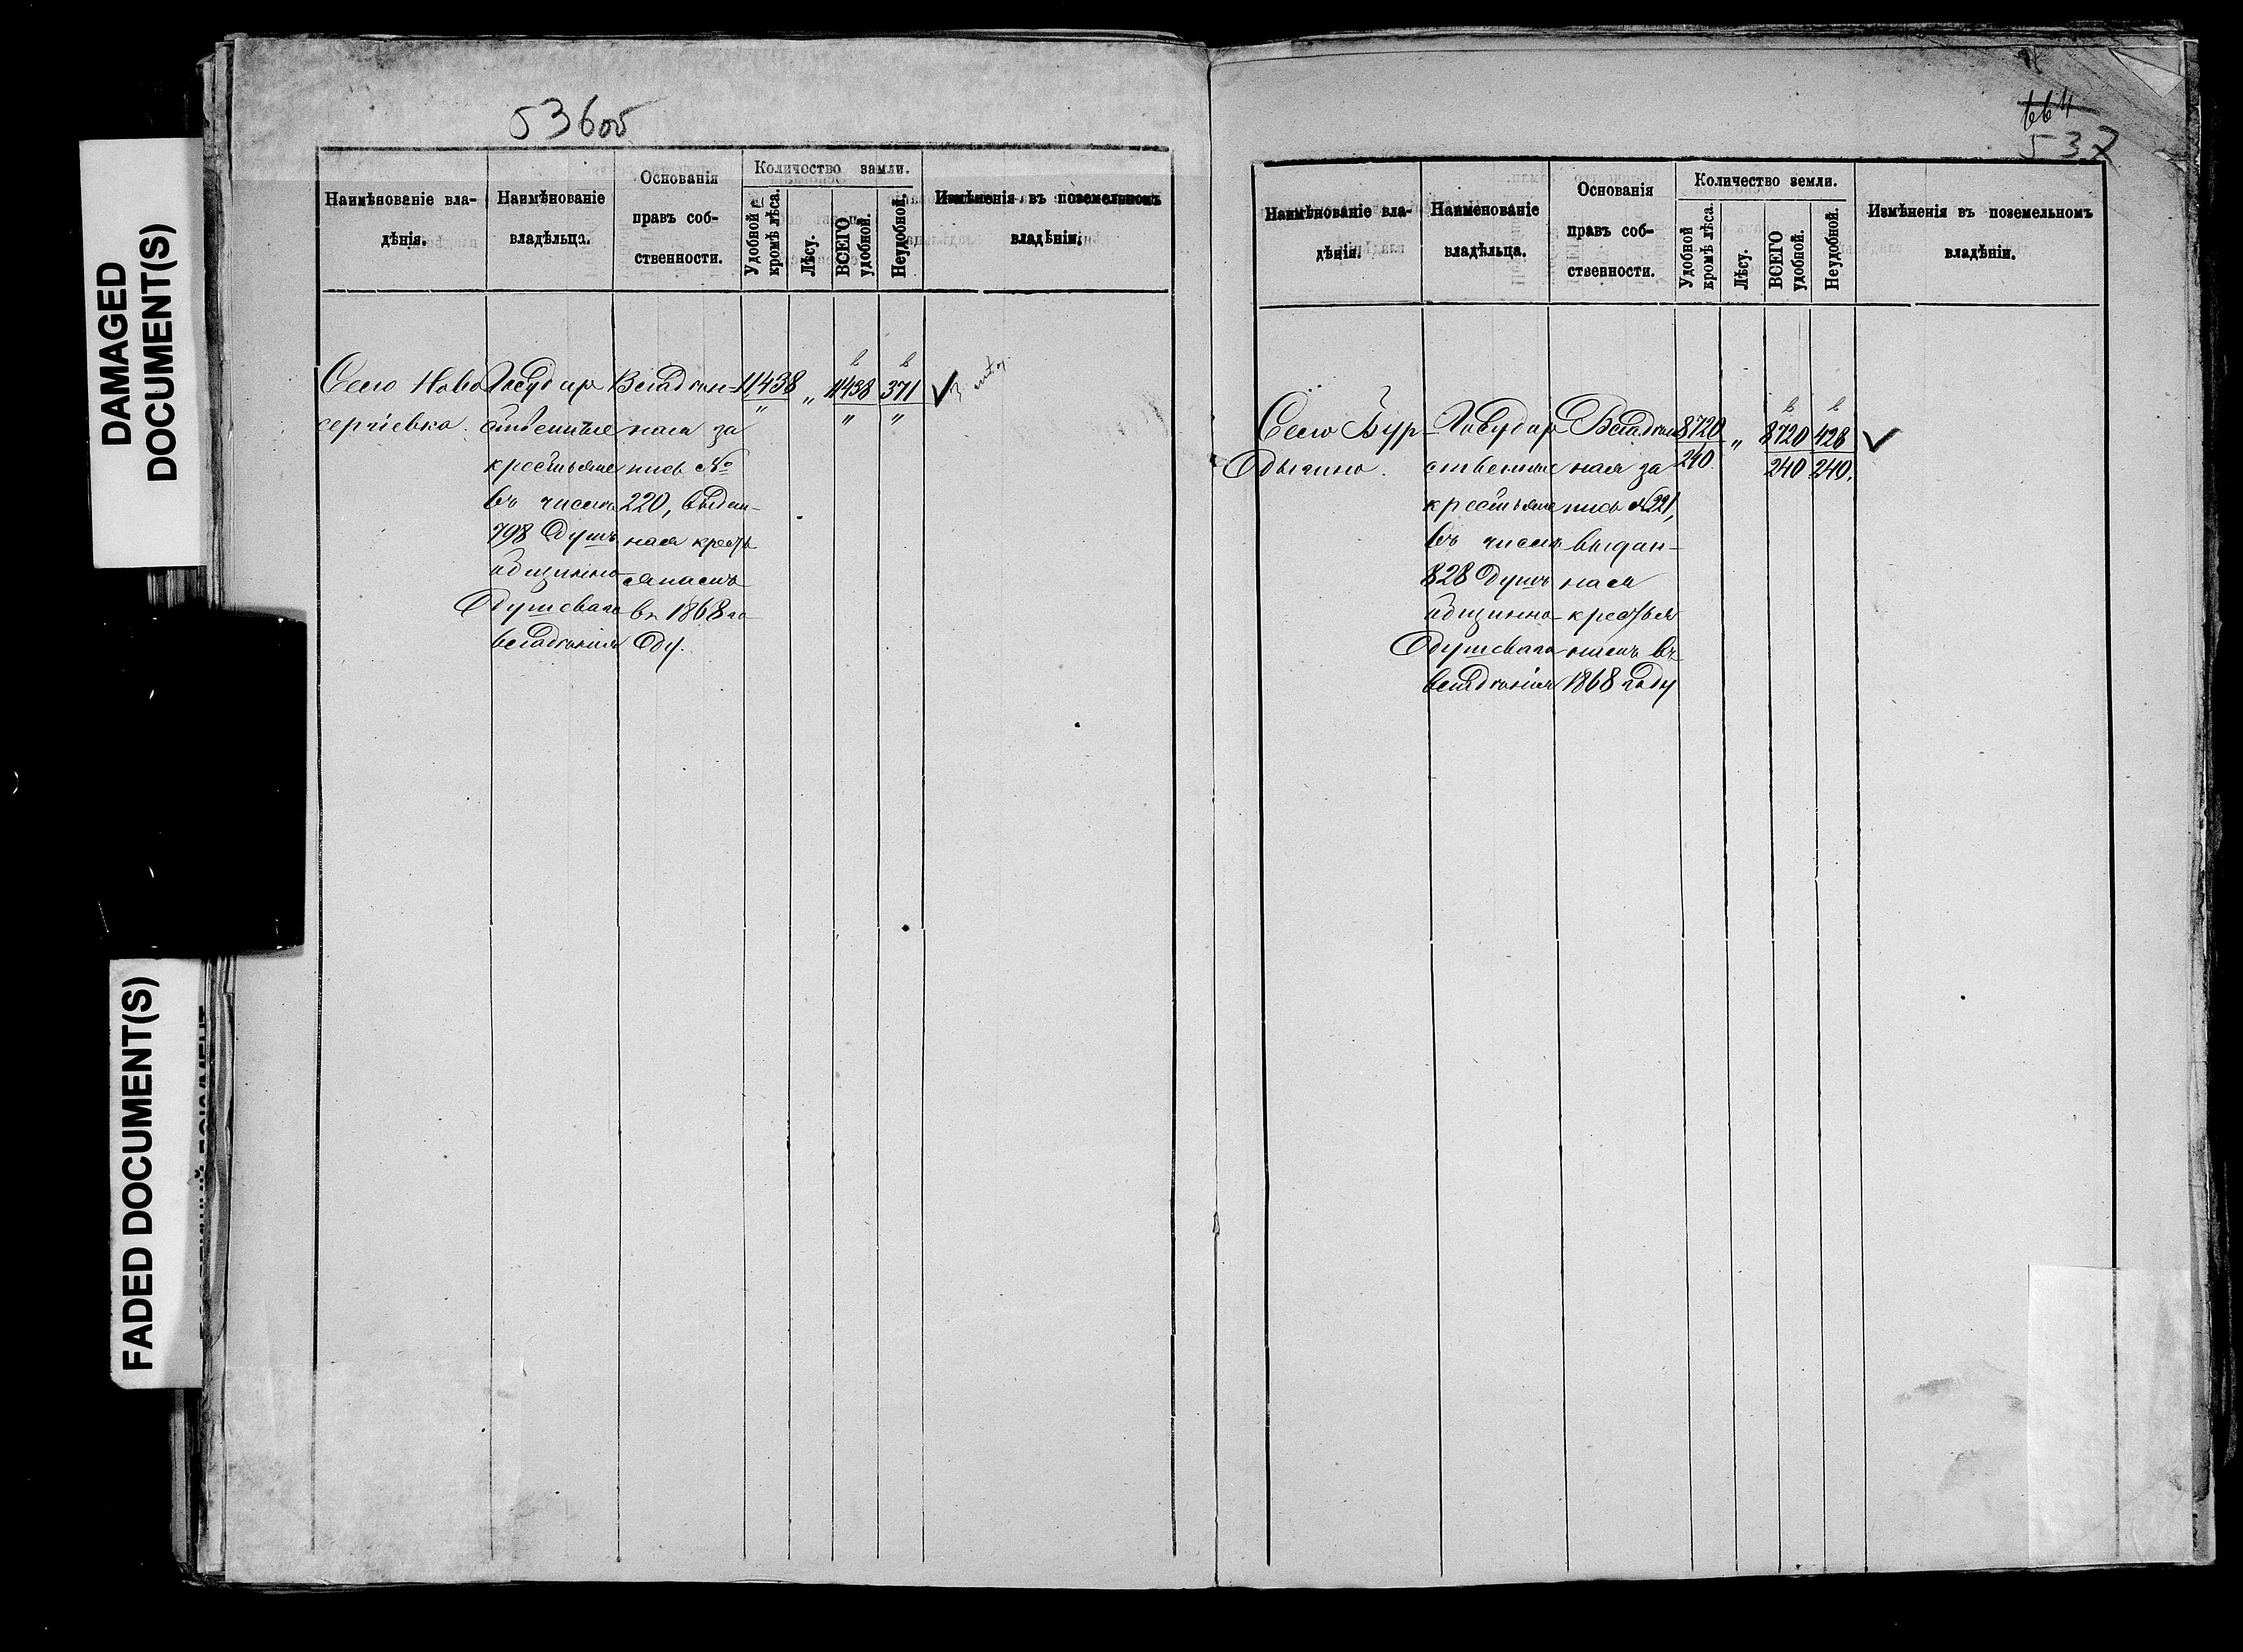 DAMAGED
DOCUMENT(S)
FADED DOCUMENT(S)
536об
Наимѣнованіе вла-
дѣнія.
Наимѣнованіе
владѣльца.
Основанія
правъ соб-
ственности.
Количество замли.
Удобной
кромѣ лѣса.
Лѣсу.
ВСЕГО
удобной.
Неудобной.
Измѣненія въ поземельномъ
владѣніи.
Село Ново
сергіевка.
Государ
ственные
крестьяне
въ числѣ
798 Душъ
общинно
Душеваго
владѣнія
Владѣн-
ная за
пись №
220, выдан-
ная кресть
янамъ
въ 1868 го
ду.
11,438
"
"
11438
"
371
"
664
537
Наимѣнованіе вла-
дѣнія.
Наименованіе
владѣльца.
Основанія
правъ соб-
ственности.
Количество земли.
Удобной
кромѣ лѣса.
Лѣсу.
ВСЕГО
удобной.
Неудобной.
Измѣненія въ поземельномъ
владѣніи.
Село Бур-
дыгино.
Государ
ственные
крестьяне
въ числѣ
828 Душъ
общинно-
Душеваго
владѣнія
Владѣн
ная за
пись №221,
выдан-
ная
крестья
намъ въ
1868 году
8720
240.
"
8720
240
428
240.